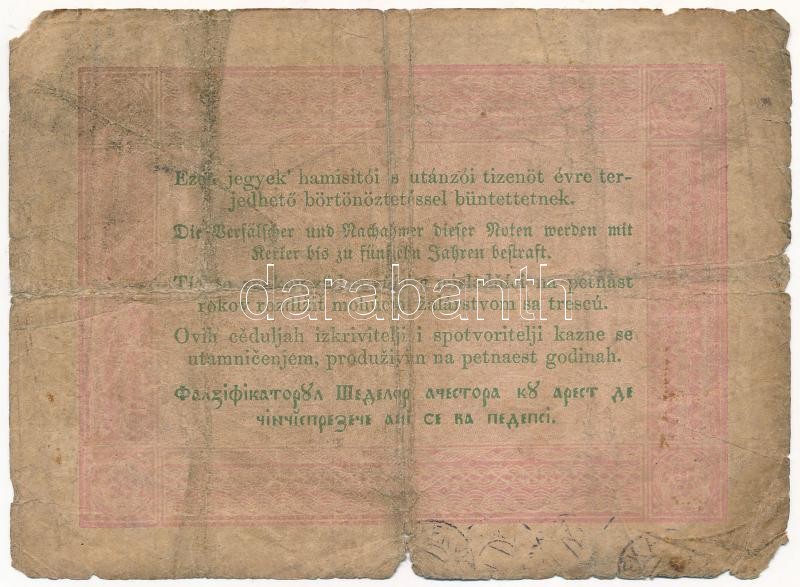 Ezen jegyek' hamisitói s utánzói tizenöt évre ter-
jedhető börtönöztetéssel büntettetnek.
Die Verfälscher und Nachahmer dieser Noten werden mit
Kerker bis zu fünfzehn Jahren bestraft.
na petnást
rokov žalárstvom sa trescú.
darabanth
Ovih céduljah izkrivitelji i spotvoritelji kazne se
utamničenjem, produživim na petnaest godinah.
Фалзіфікаторꙋл Шеделор ачестора кꙋ арест де
чінчіспрезече ані се ва педепсі.